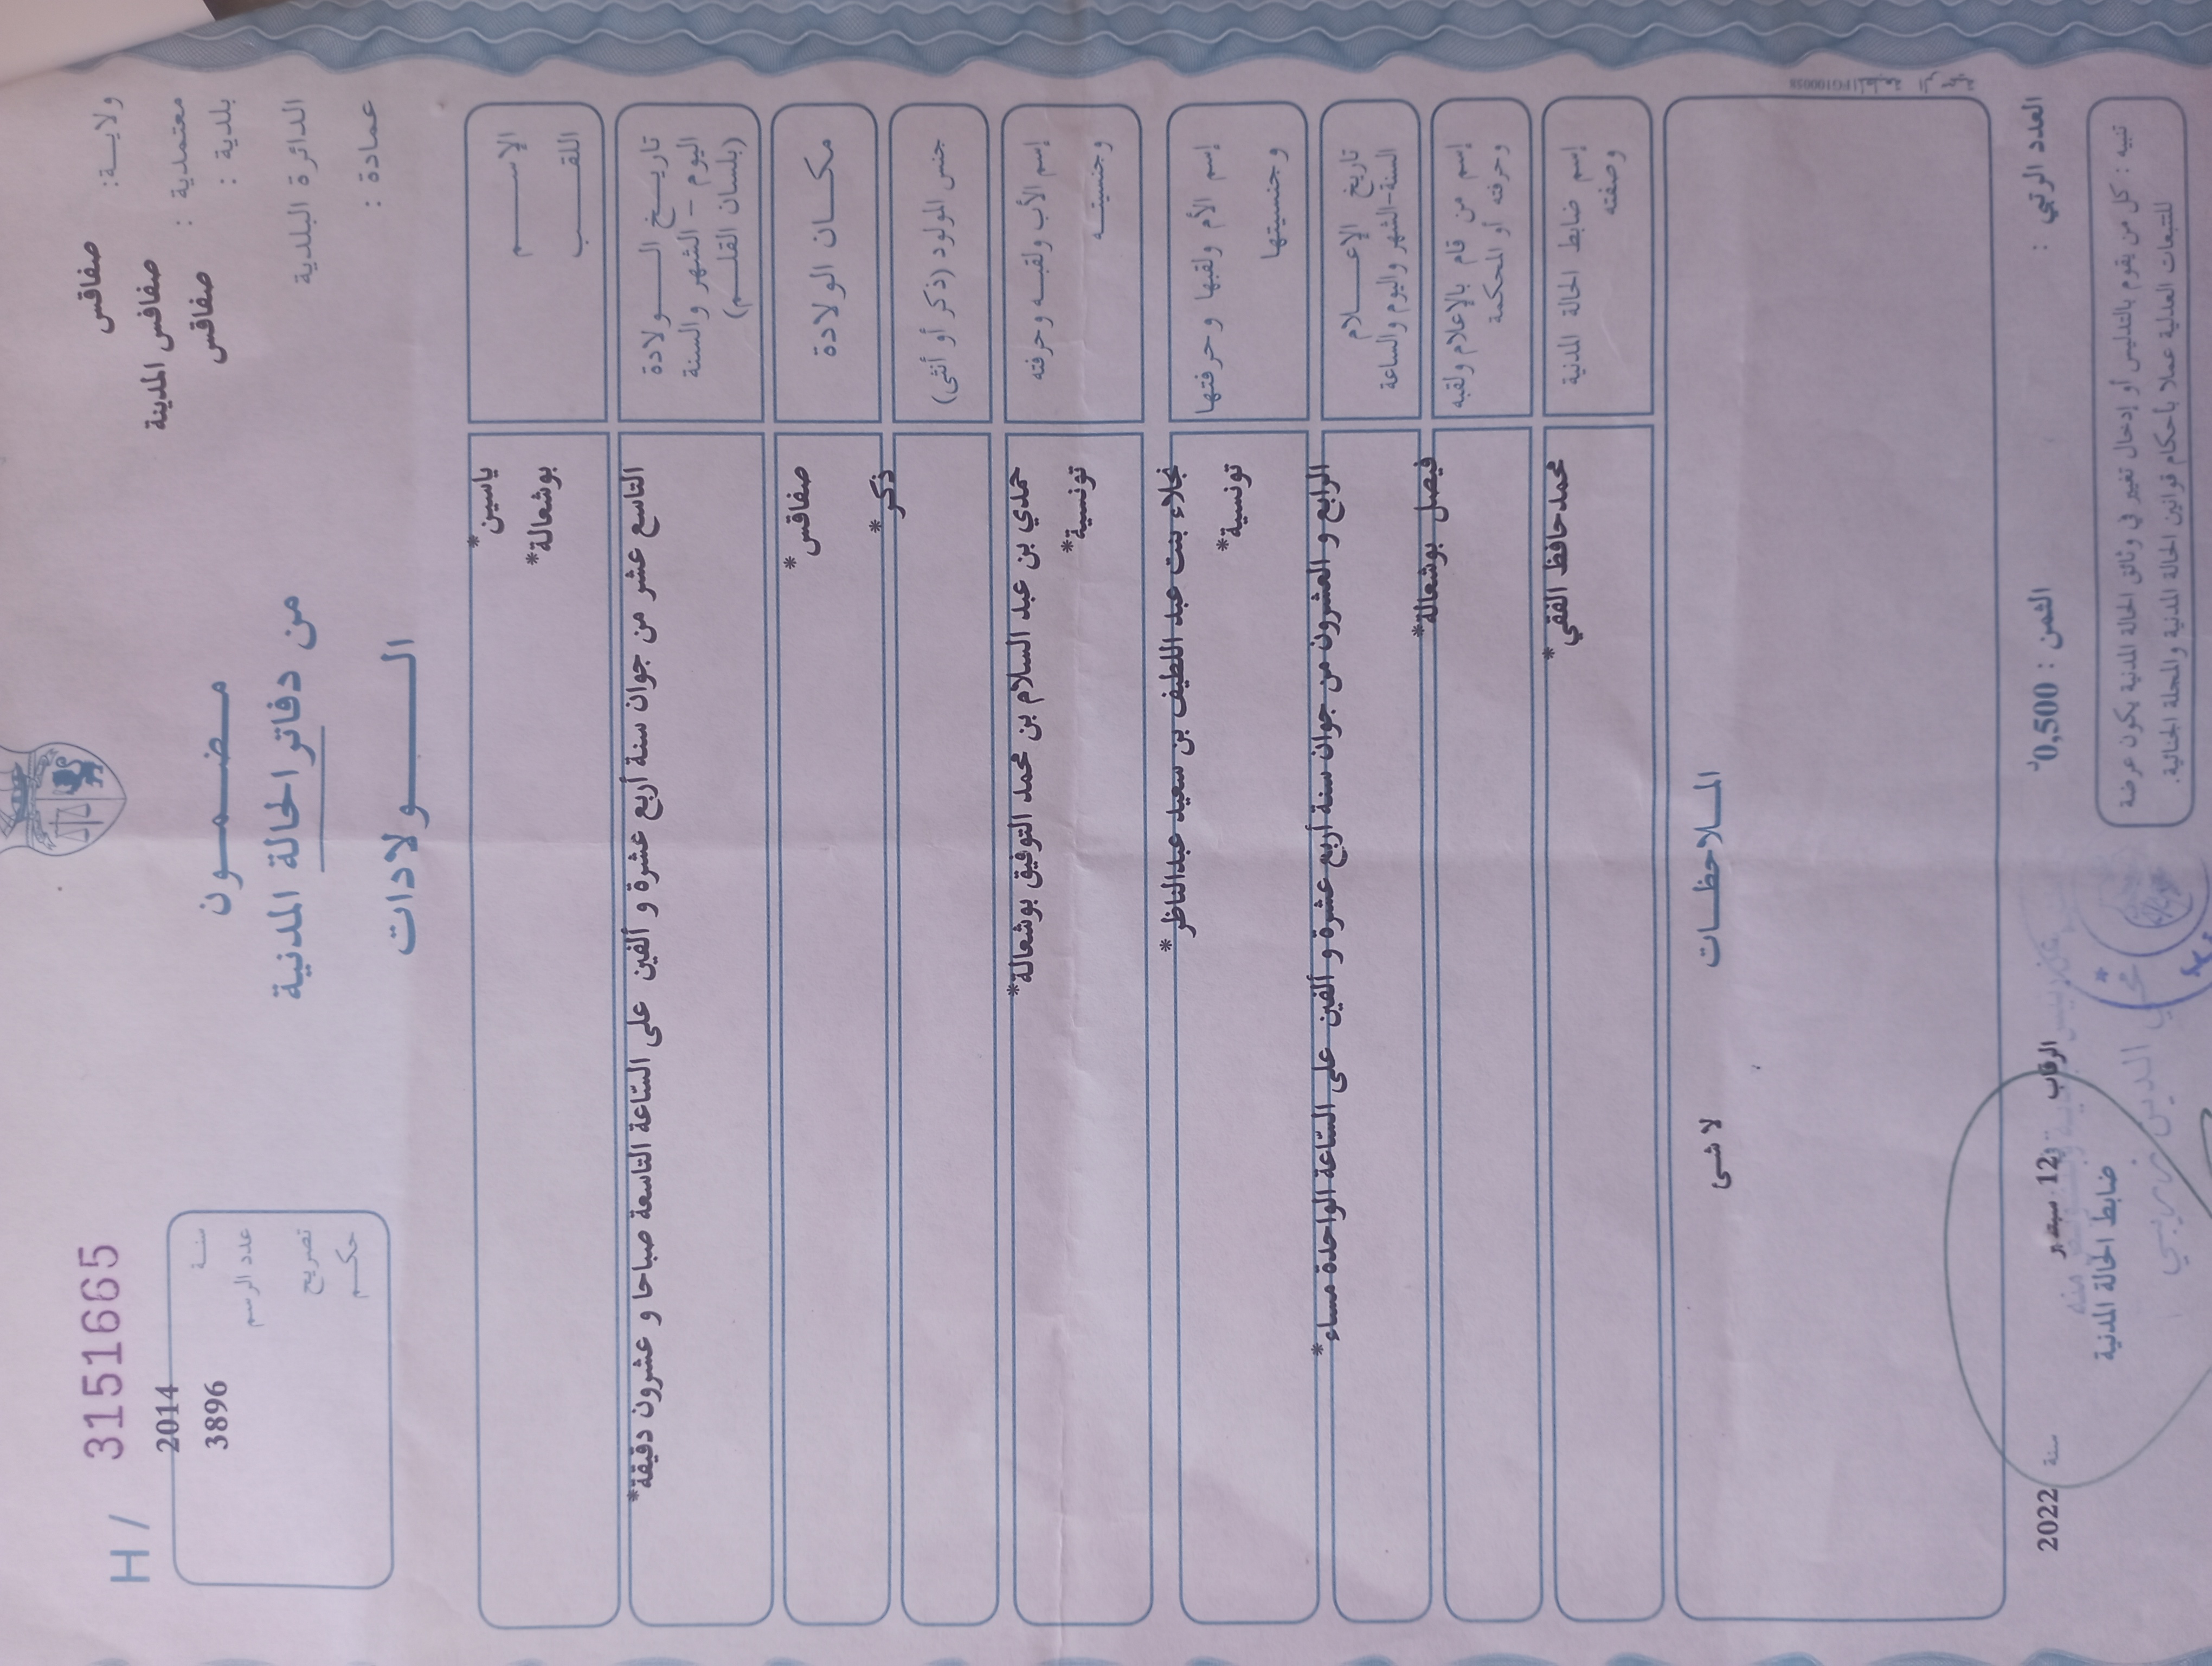 ولايــة: صفاقس
معتمدية : صفاقس المدينة
بلدية : صفاقس
الدائرة البلدية
عمادة :
H / 3151665
سنة 2014
عدد الرسم 3896
تصريح
حكم
مـضـمـون
من دفاتر الحالة المدنية
الــولادات
الإســم ياسين*
اللقــب بوشعالة*
تاريــخ الــولادة
اليوم - الشهر والسنة
(بلسان القلــم)
التاسع عشر من جوان سنة أربع عشرة و ألفين على السّاعة التاسعة صباحا و عشرون دقيقة*
مكــان الولادة صفاقس*
جنس المولود (ذكر أو أنثى) ذكر*
إسم الأب ولقبـه وحرفته حمدي بن عبد السلام بن محمد التوفيق بوشعالة*
وجنسيتــه تونسية*
إسم الأم ولقبها وحرفتها نجلاء بنت عبد اللطيف بن سعيد عبدالناظر*
وجنسيتها تونسية*
تاريخ الإعــلام
السنة-الشهر واليوم والساعة
الرابع و العشرون من جوان سنة أربع عشرة و ألفين على السّاعة الواحدة مساء*
إسم من قام بالإعلام ولقبه
وحرفته أو المحكمة
فيصل بوشعالة*
إسم ضابط الحالة المدنية
وصفته
محمدحافظ الفقي*
المـلاحظـات
لا شى
العدد الرتبي :
الثمن : 0,500د
الرقاب 12 سبتمبر سنة 2022
ضابط الحالة المدنية
تنبيه : كل من يقوم بالتدليس أو إدخال تغيير في وثائق الحالة المدنية يكون عرضة
للتتبعات العدلية عملا بأحكام قوانين الحالة المدنية والمجلة الجنائية.